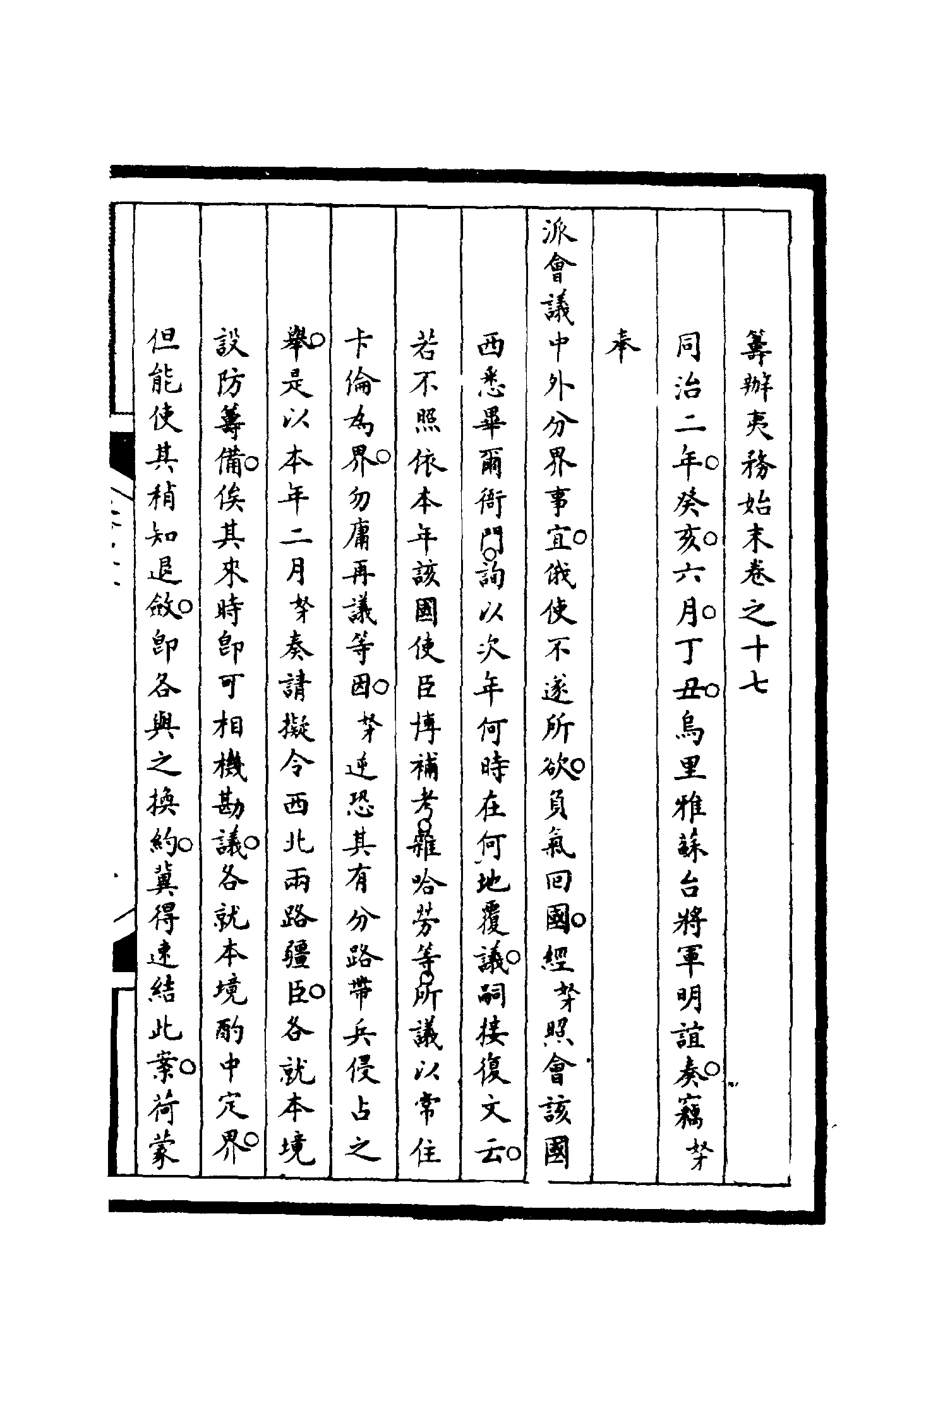 籌辦夷務始末卷之十七
同治二年○癸亥○六月○丁丑○烏里雅蘇台將軍明誼奏○竊孥
奉
派會議中外分界事宜○俄使不遂所欲○負氣回國○經孥照會該國
西悉畢爾衙門○詢以次年何時在何地覆議○嗣接復文云○
若不照依本年該國使臣博補考○雜哈勞等○所議以常住
卡倫為界○勿庸再議等因○孥逆恐其有分路帶兵侵占之
舉○是以本年二月孥奏請擬令西北兩路疆臣○各就本境
設防籌備○俟其來時卽可相機勘議○各就本境酌中定界○
但能使其稍知退斂○卽各與之換約○冀得速結此案○荷蒙